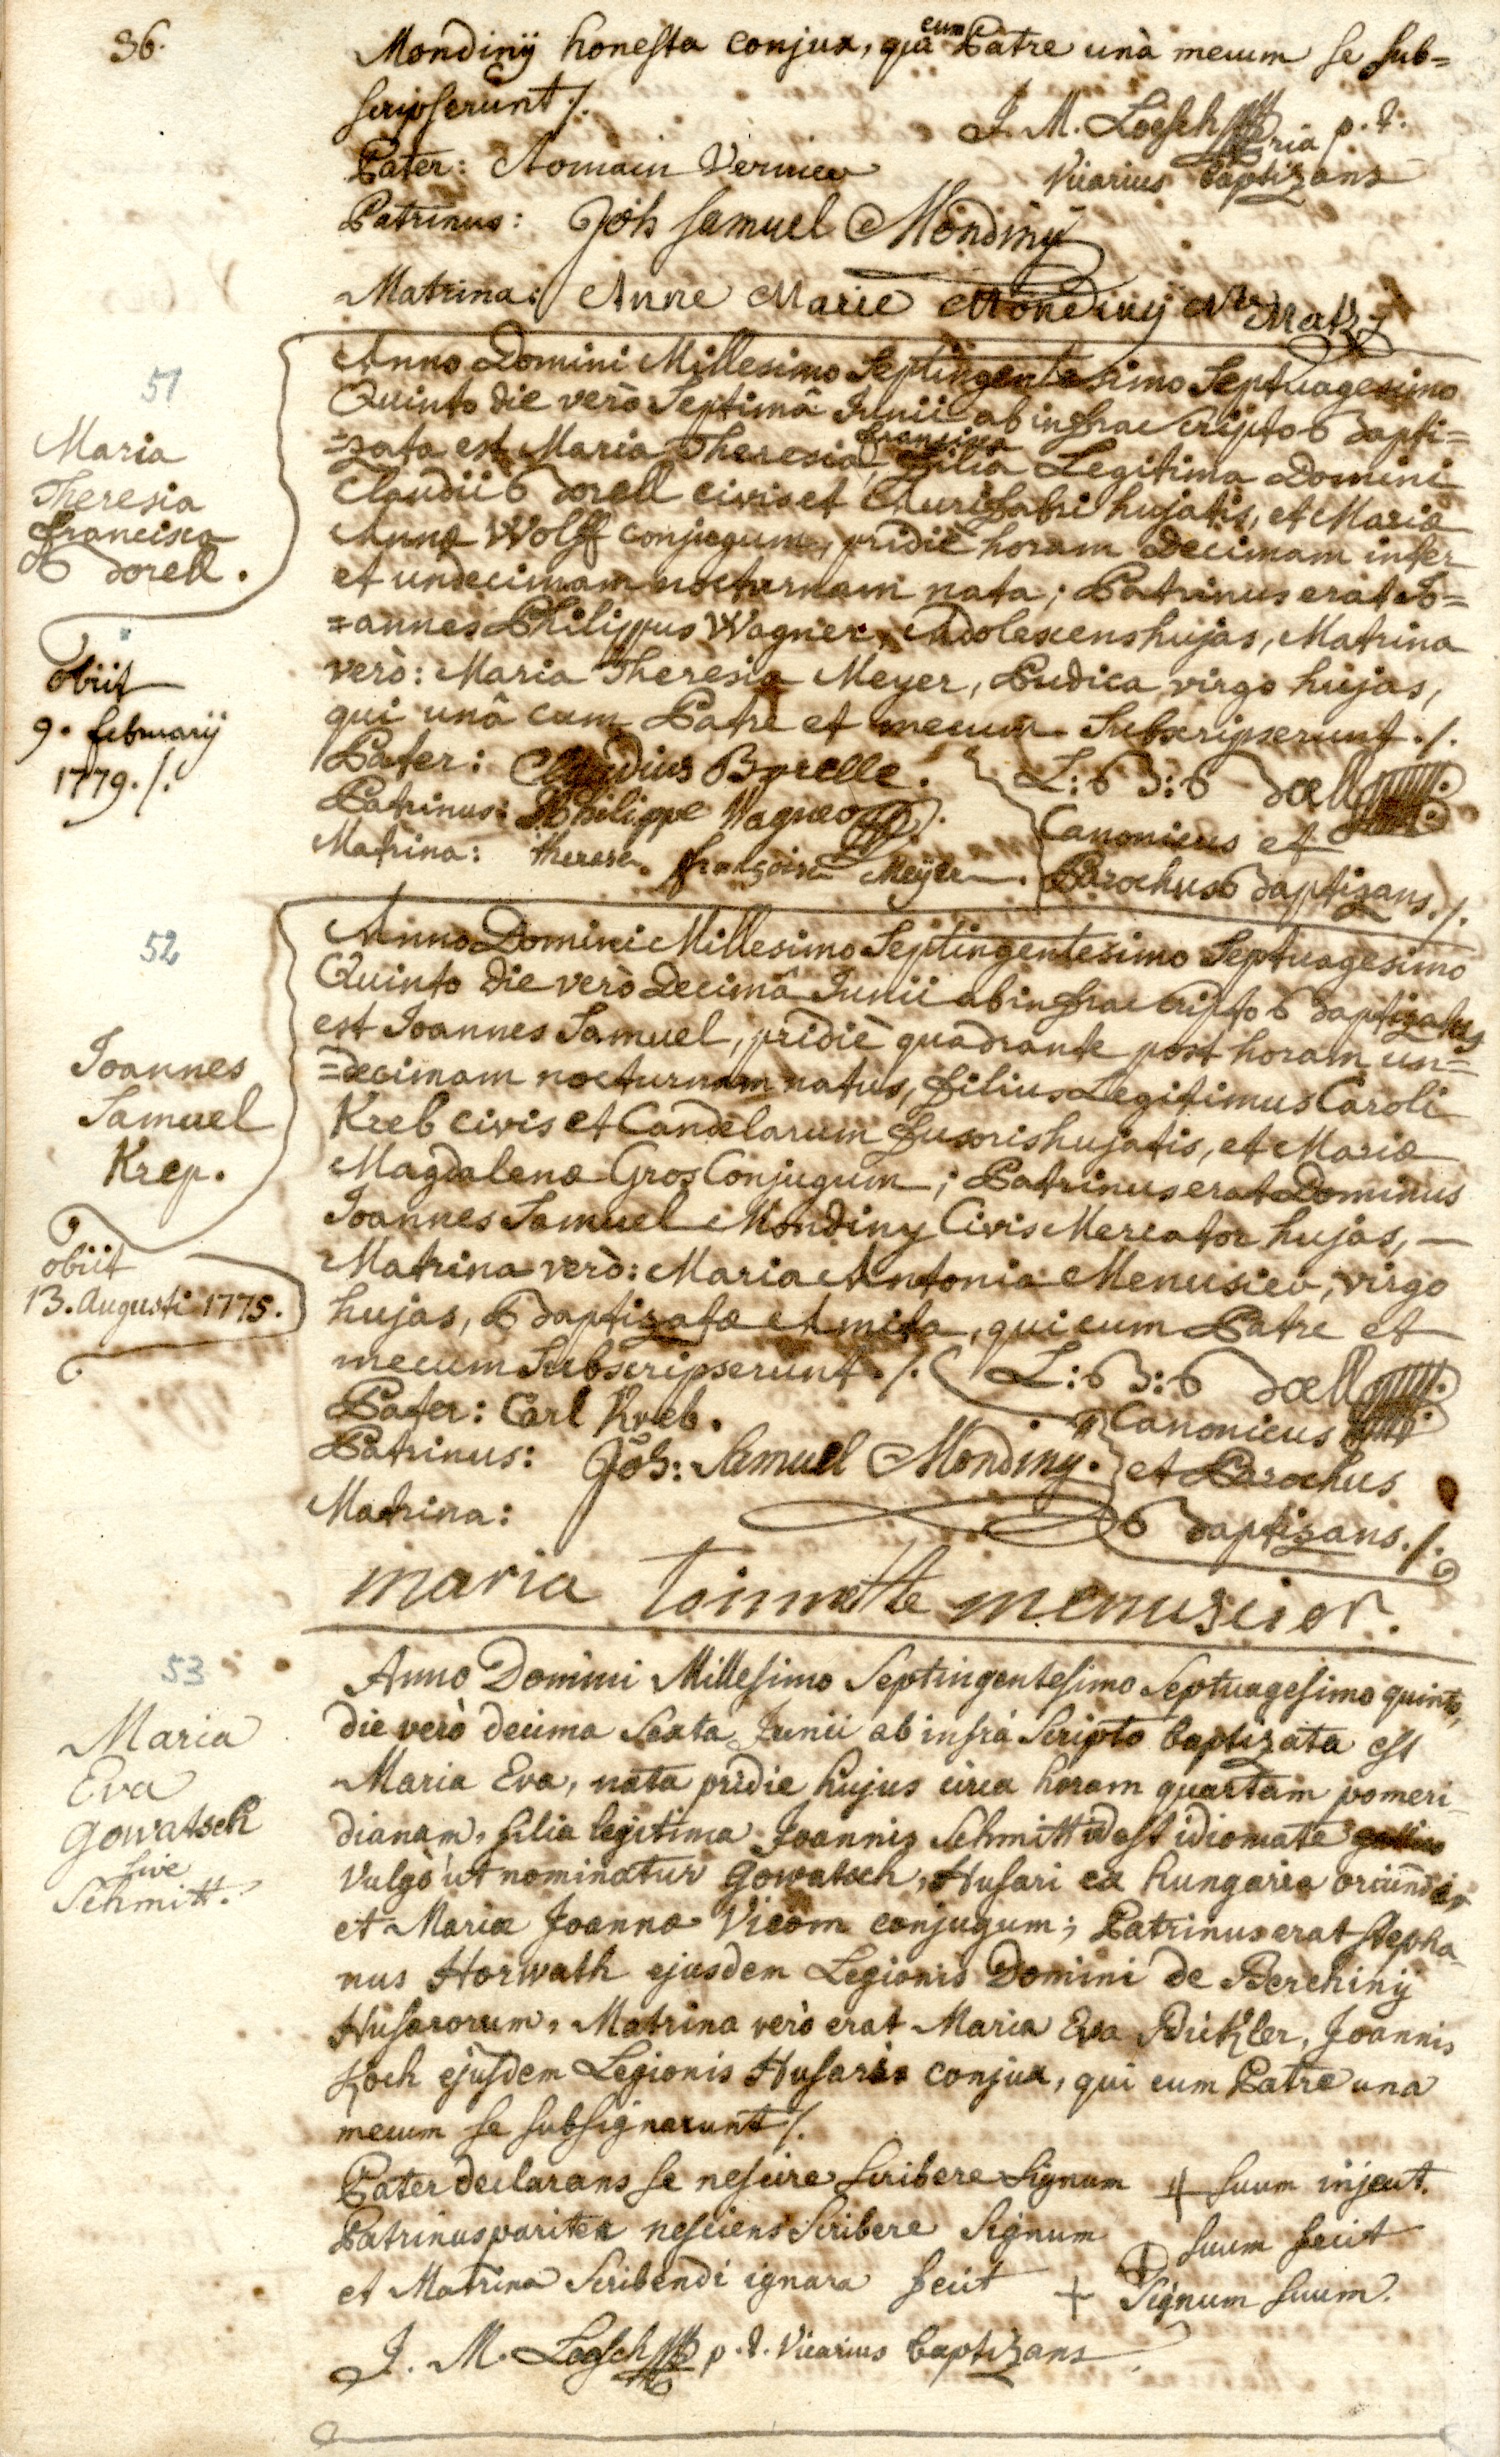 36.
Mondinÿ honesta conjux, quæ cum Patre unà mecum se sub=
scripserunt ./.
J. M. Loesch p. t.
Pater: Romain Vernier
Vicarius baptizans
Patrinus: Joh Samuel Mondiny
Matrina: Anne Marie Mondiny
51
Maria
Theresia
Francisca
Borell.
obiit
9. februarij
1779. ./.
Anno Domini Millesimo Septingentesimo Septuagesimo
Quinto die verò Septimâ Junii ab infrascripto Bapti=
=zata est Maria Theresia Francisca, Filia Legitima Domini
Claudii Borell civis et Aurifabri hujatis, et Mariæ
Annæ Wolff conjugum, pridiè horam Decimam inter
et undecimam nocturnam nata; Patrinus erat Jo=
=annes Philippus Wagner, Adolescens hujas, Matrina
verò: Maria Theresia Meyer, Pudica virgo hujas,
qui unâ cum Patre et mecum Subscripserunt. ./.
Pater: Claudius Borelle.
L: B: Boell
Patrinus: Philippe Wagner
Canonicus et
Matrina: theresa françoise Meÿer
Parochus Baptizans. ./.
52
Joannes
Samuel
Krep.
obiit
13. Augusti 1775.
Anno Domini Millesimo Septingentesimo Septuagesimo
Quinto die verò Decimâ Junii ab infrascripto Baptizatus
est Joannes Samuel, pridiè quadrante post horam un=
=decimam nocturnam natus, filius Legitimus Caroli
Kreb civis et Candelarum fusoris hujatis, et Mariæ
Magdalenæ Gros Conjugum; Patrinus erat Dominus
Joannes Samuel Mondiny Civis Mercator hujas, —
Matrina verò: Maria Antonia Menusier, virgo
hujas, Baptizatæ et mita, qui cum Patre et
mecum Subscripserunt. ./.
L: B: Boell
Pater: Carl Kreb.
Canonicus
Patrinus: Joh: Samuel Mondiny.
et Parochus
Matrina:
Baptizans. ./.
maria toinnette menusier.
53
Maria
Eva
Gowatsch
sive
Schmitt.
Anno Domini Millesimo Septingentesimo Septuagesimo quinto,
die verò decima Sexta Junii ab infrà Scripto baptizata est
Maria Eva, nata pridie hujus circa horam quartam pomeri
dianam, filia legitima Joannis Schmitt id est idiomate
Vulgò ut nominatur Gowatsch, Husari ex hungaria oriundi,
et Mariæ Joannæ Vicom conjugum; Patrinus erat Stepha
nus Horwath ejusdem Legionis Domini de Berchiny
Husarorum, Matrina verò erat Maria Eva Bickler, Joannis
Koch ejusdem Legionis Husaris conjux, qui cum Patre una
mecum se subsignarunt ./.
Pater declarans se nescire scribere Signum + suum injecit.
Patrinus pariter nesciens Scribere Signum + suum fecit
et Matrina Scribendi ignara fecit + Signum suum.
J. M. Loesch p. t. Vicarius baptizans